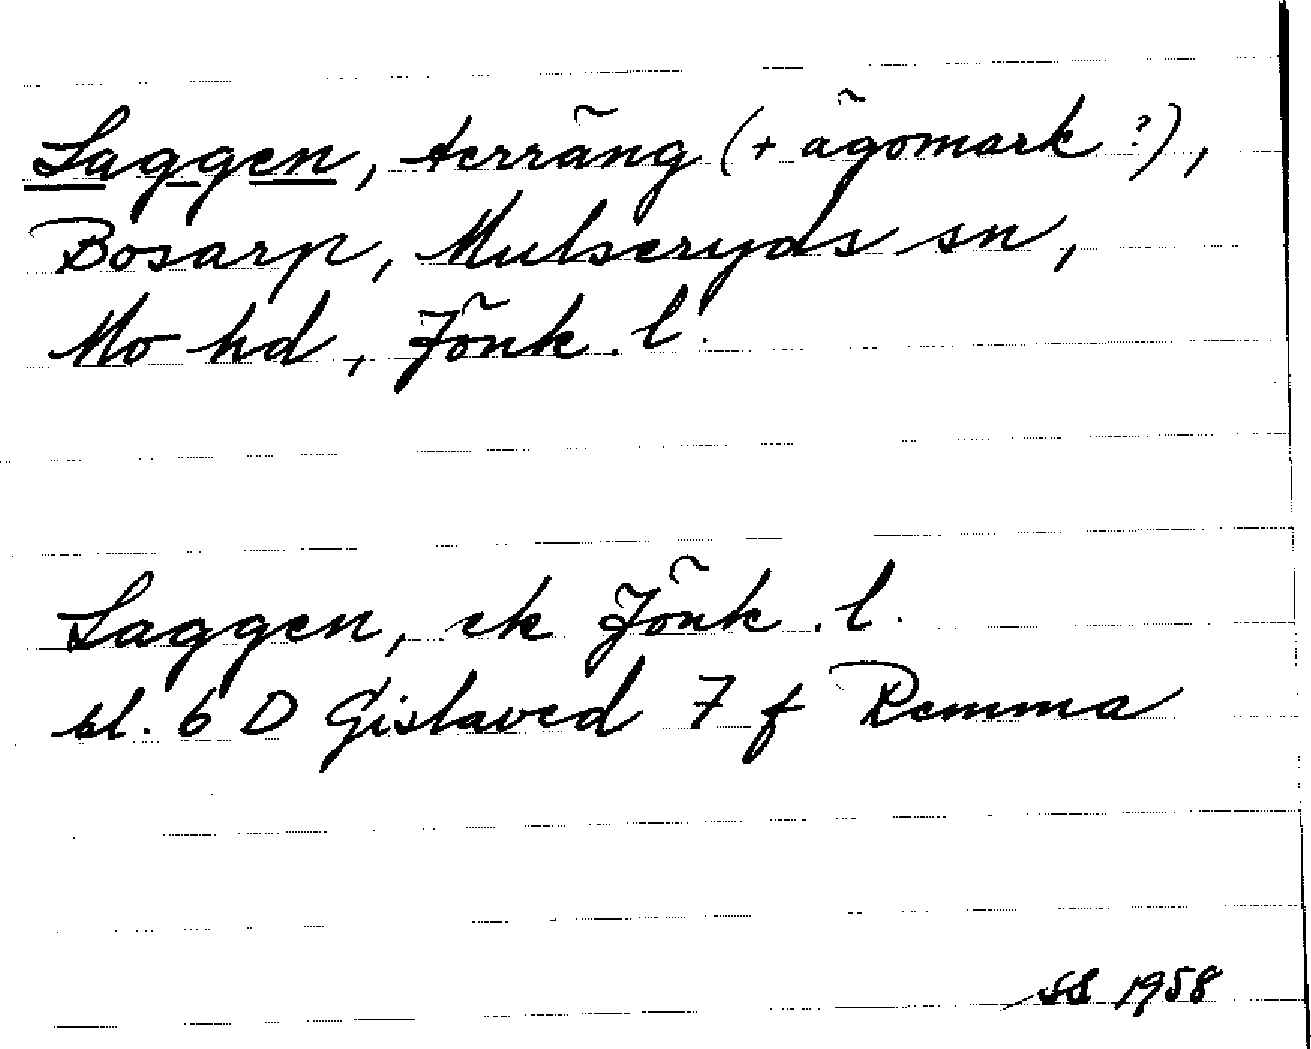 Laggen, terräng (+ ägomark ?),
Bosarp, Mulseryds sn,
Mo hd, Jönk. l.
Laggen, ek Jönk. l.
bl. 6 D Gislaved 7 f Remma
SS 1958